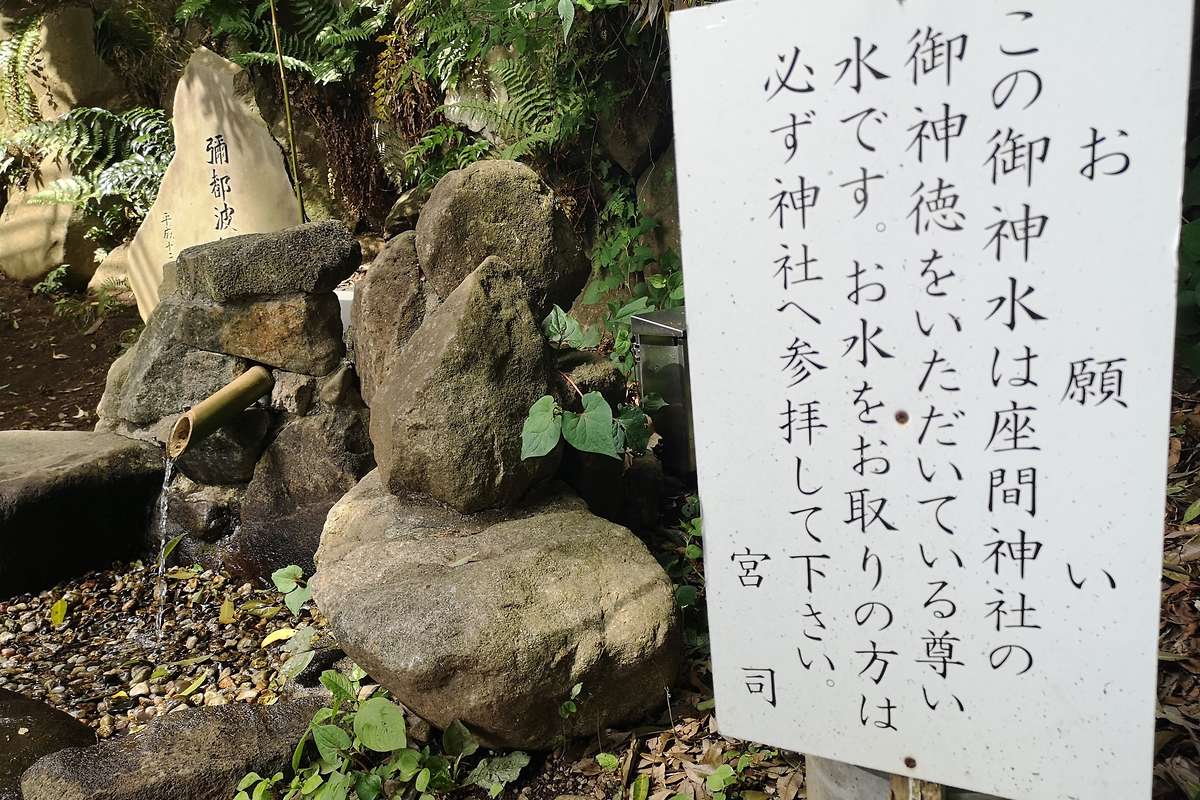 お願い
この御神水は座間神社の
御神徳をいただいている尊い
水です。お水をお取りの方は
必ず神社へ参拝して下さい。
宮司
彌都波
平成十